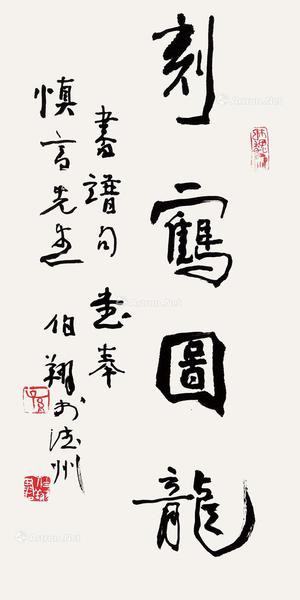 刻鶴圖龍
書譜句 書奉
慎言先生
伯翔於
Artron.Net